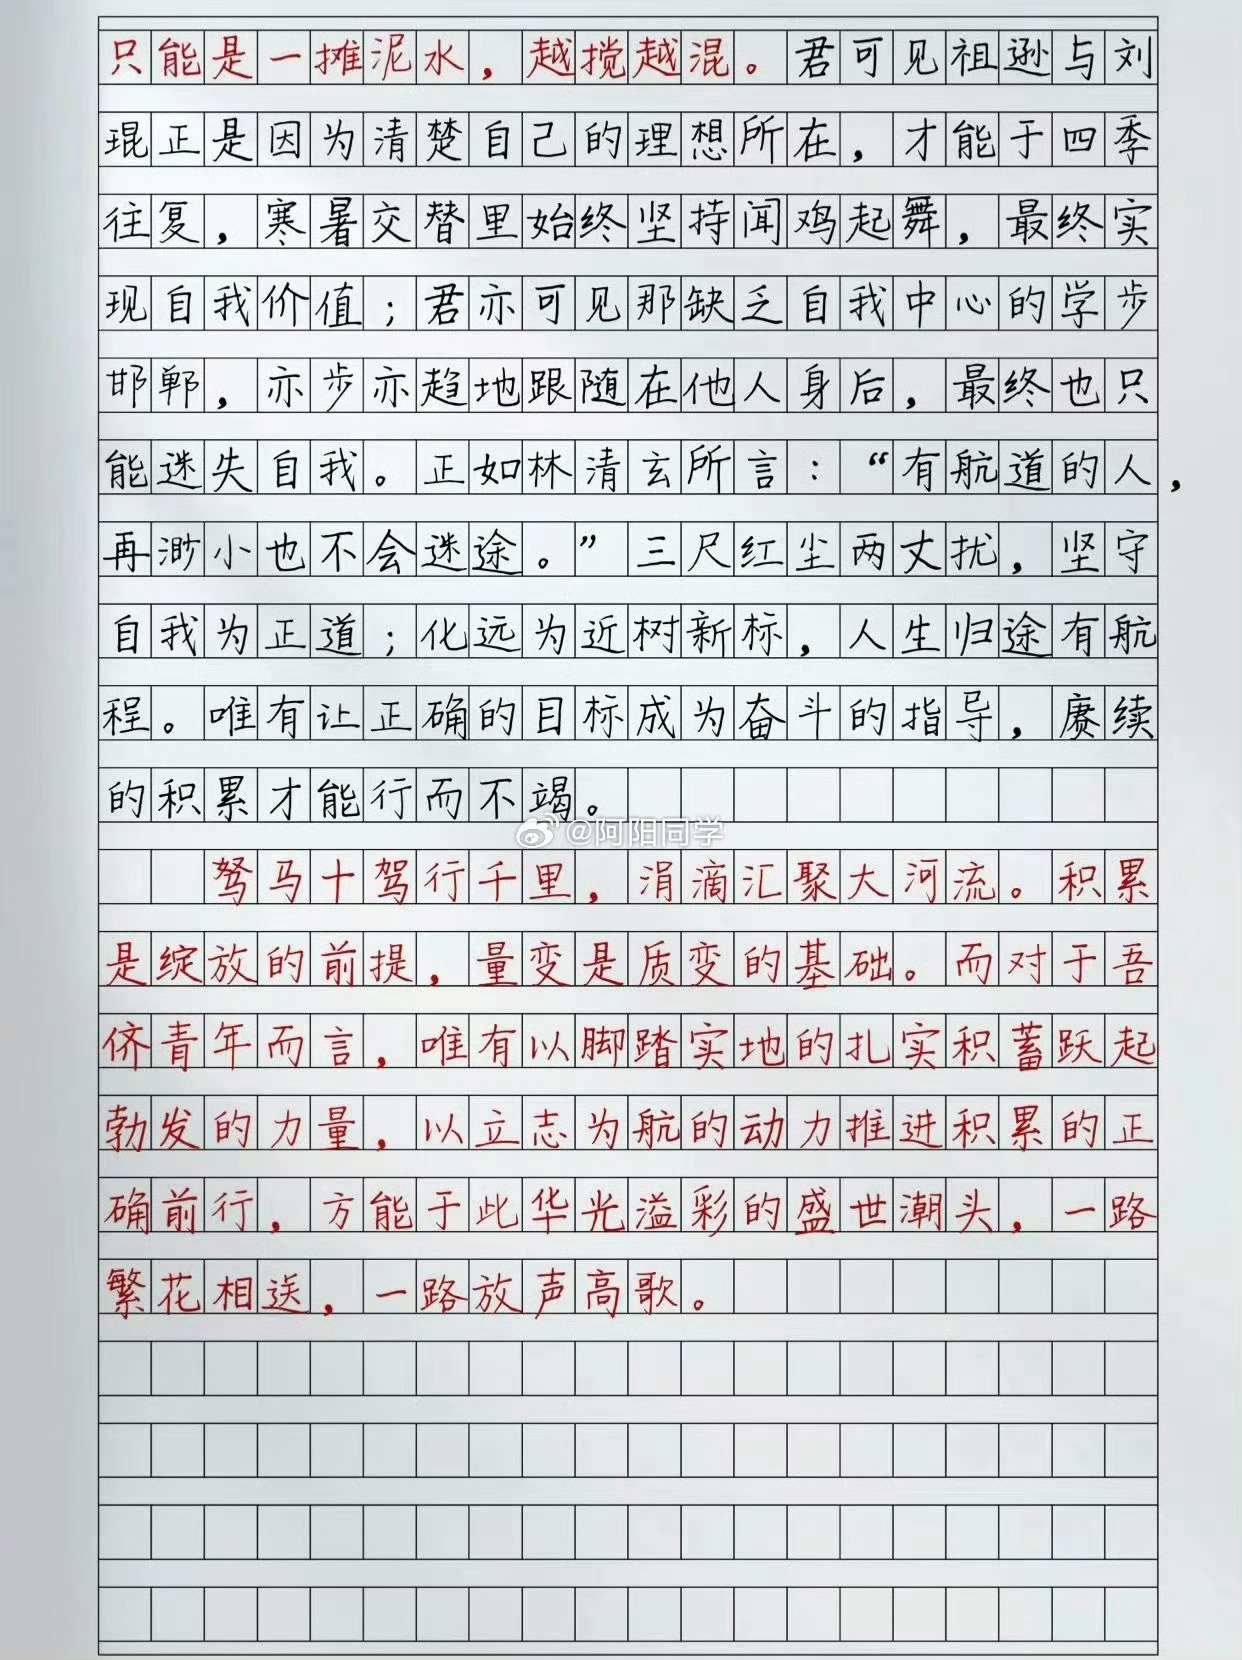 只能是一摊泥水，越搅越混。君可见祖逊与刘
琨正是因为清楚自己的理想所在，才能于四季
往复，寒暑交替里始终坚持闻鸡起舞，最终实
现自我价值；君亦可见那缺乏自我中心的学步
邯郸，亦步亦趋地跟随在他人身后，最终也只
能迷失自我。正如林清玄所言：“有航道的人，
再渺小也不会迷途。”三尺红尘两丈扰，坚守
自我为正道；化远为近树新标，人生归途有航
程。唯有让正确的目标成为奋斗的指导，赓续
的积累才能行而不竭。
@阿阳同学
驽马十驾行千里，涓滴汇聚大河流。积累
是绽放的前提，量变是质变的基础。而对于吾
侪青年而言，唯有以脚踏实地的扎实积蓄跃起
勃发的力量，以立志为航的动力推进积累的正
确前行，方能于此华光溢彩的盛世潮头，一路
繁花相送，一路放声高歌。